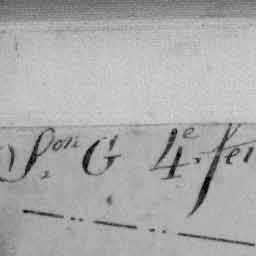 S.on G 4e. fe